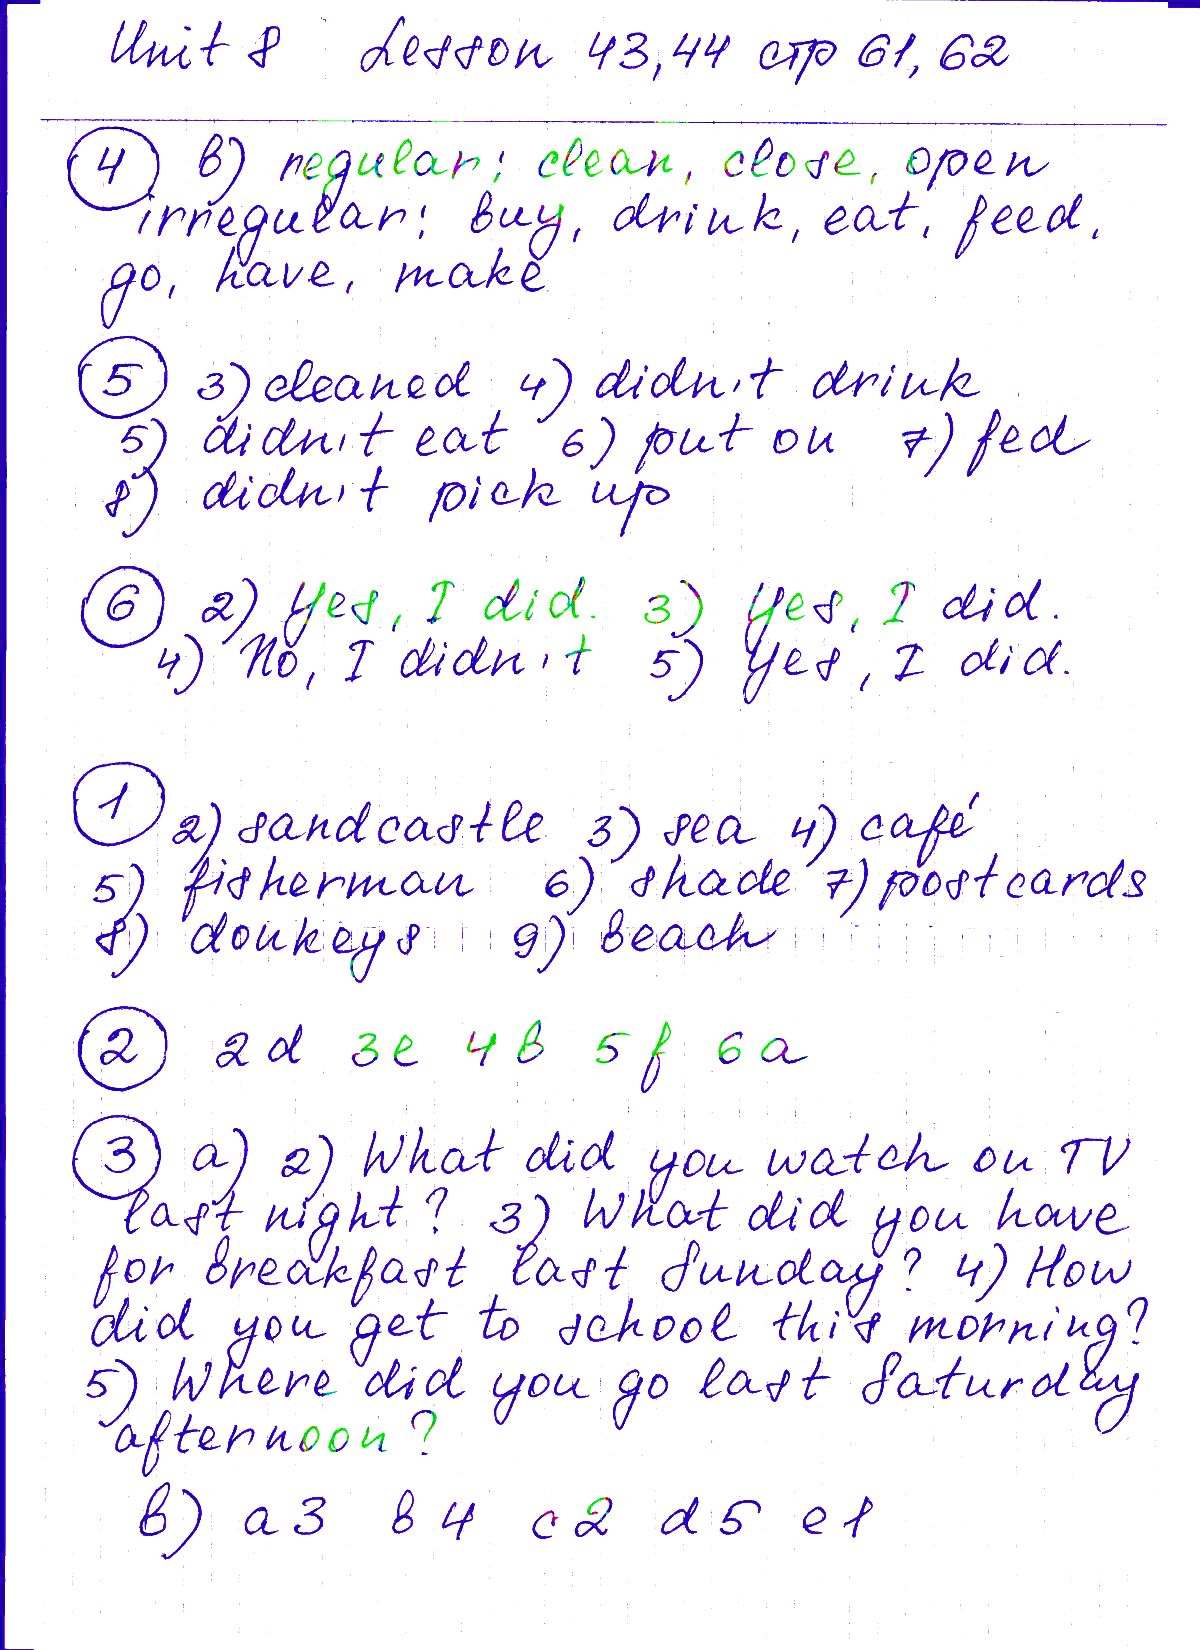 Unit 8 Lesson 43,44 стр 61, 62
4 b) regular: clean, close, open
irregular: buy, drink, eat, feed,
go, have, make
5 3) cleaned 4) didn't drink
5) didn't eat 6) put on 7) fed
8) didn't pick up
6 2) Yes, I did. 3) Yes, I did.
4) No, I didn't 5) Yes, I did.
1 2) sandcastle 3) sea 4) café
5) fisherman 6) shade 7) postcards
8) donkeys 9) beach
2 2d 3e 4b 5f 6a
3 a) 2) What did you watch on TV
last night? 3) What did you have
for breakfast last Sunday? 4) How
did you get to school this morning?
5) Where did you go last Saturday
afternoon?
b) a3 b4 c2 d5 e1